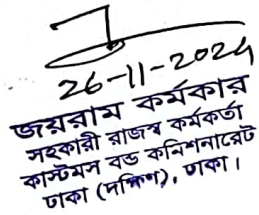 26-11-2024
জয়রাম কর্মকার
সহকারী রাজস্ব কর্মকর্তা
কাস্টমস বন্ড কমিশনারেট
ঢাকা (দক্ষিণ), ঢাকা।